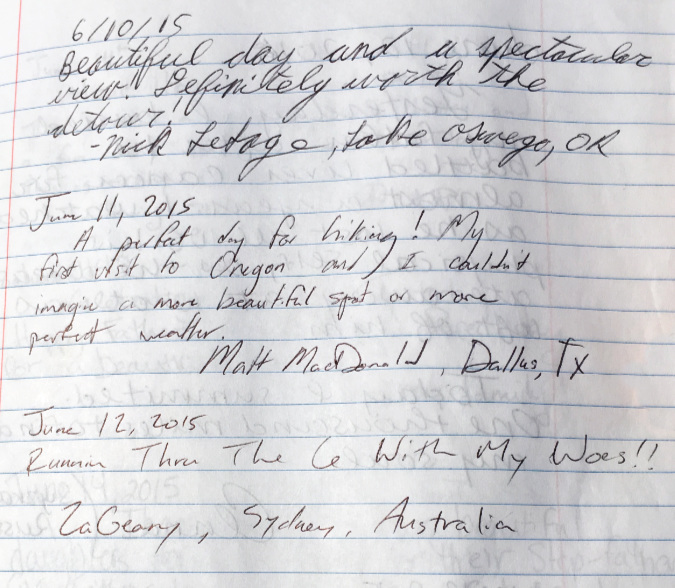 6/10/15
Beautiful day and a spectacular
view! Definitely worth the
detour!
-Nick Letage, Lake Oswego, OR
June 11, 2015
A perfect day for hiking! My
first visit to Oregon and I couldn't
imagine a more beautiful spot or more
perfect weather.
Matt MacDonald, Dallas, TX
June 12, 2015
Runnin Thru The 6 With My Woes!!
ZaGeary, Sydney, Australia